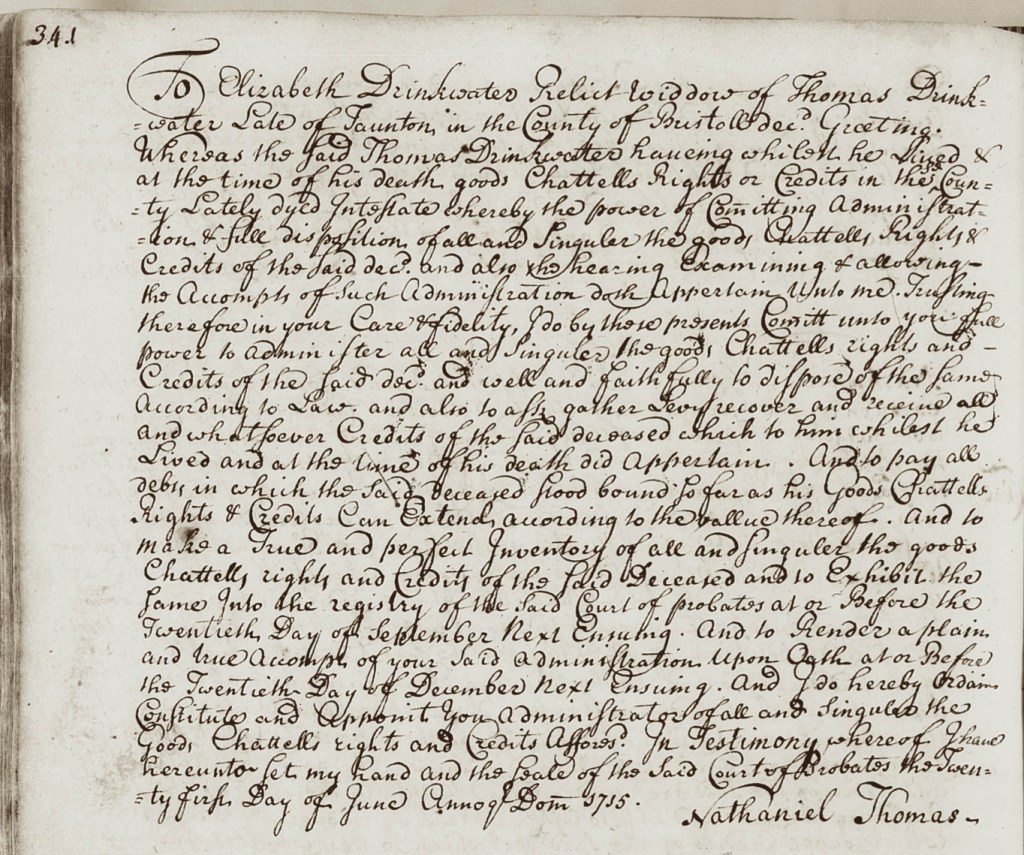 341
To Elizabeth Drinkwater Relict Widdow of Thomas Drink=
=water Late of Taunton in the County of Bristoll decd. Greeting.
Whereas the said Thomas Drinkwater haueing whilest he Lived &
at the time of his death goods Chattells Rights or Credits in the sd Coun=
=ty Lately dyed Intestate whereby the power of Comitting Administrat=
=ion & full disposition of all and Singuler the goods Chattells Rights &
Credits of the said decd. and also the hearing Examining & allowing
the Accompts of such Administration doth Appertain Unto me. Trusting
therefore in your Care & fidelity, I do by these presents Comitt unto you full
power to administer all and Singuler the goods Chattells rights and
Credits of the said decd. and well and faithfully to dispose of the same
According to Law. and also to ask gather Levy recover and receive all
and whatsoever Credits of the said deceased which to him whilest he
Lived and at the time of his death did Appertain. And to pay all
debts in which the said deceased stood bound so far as his Goods Chattells
Rights & Credits Can Extend according to the vallue thereof. And to
make a True and perfect Inventory of all and singuler the goods
Chattells rights and Credits of the said Deceased and to Exhibit the
same Into the registry of the said Court of probates at or Before the
Twentieth Day of September Next Ensuing. And to Render a plain
and true Accompt of your said administration Upon Oath at or Before
the Twentieth Day of December Next Ensuing. And I do hereby Ordain
Constitute and Appoint You Administrator of all and Singuler the
Goods Chattells rights and Credits Aforesd. In Testimony whereof I have
hereunto set my hand and the seale of the said Court of Probates the Twen=
=ty first Day of June Annoq Dom 1715.
Nathaniel Thomas